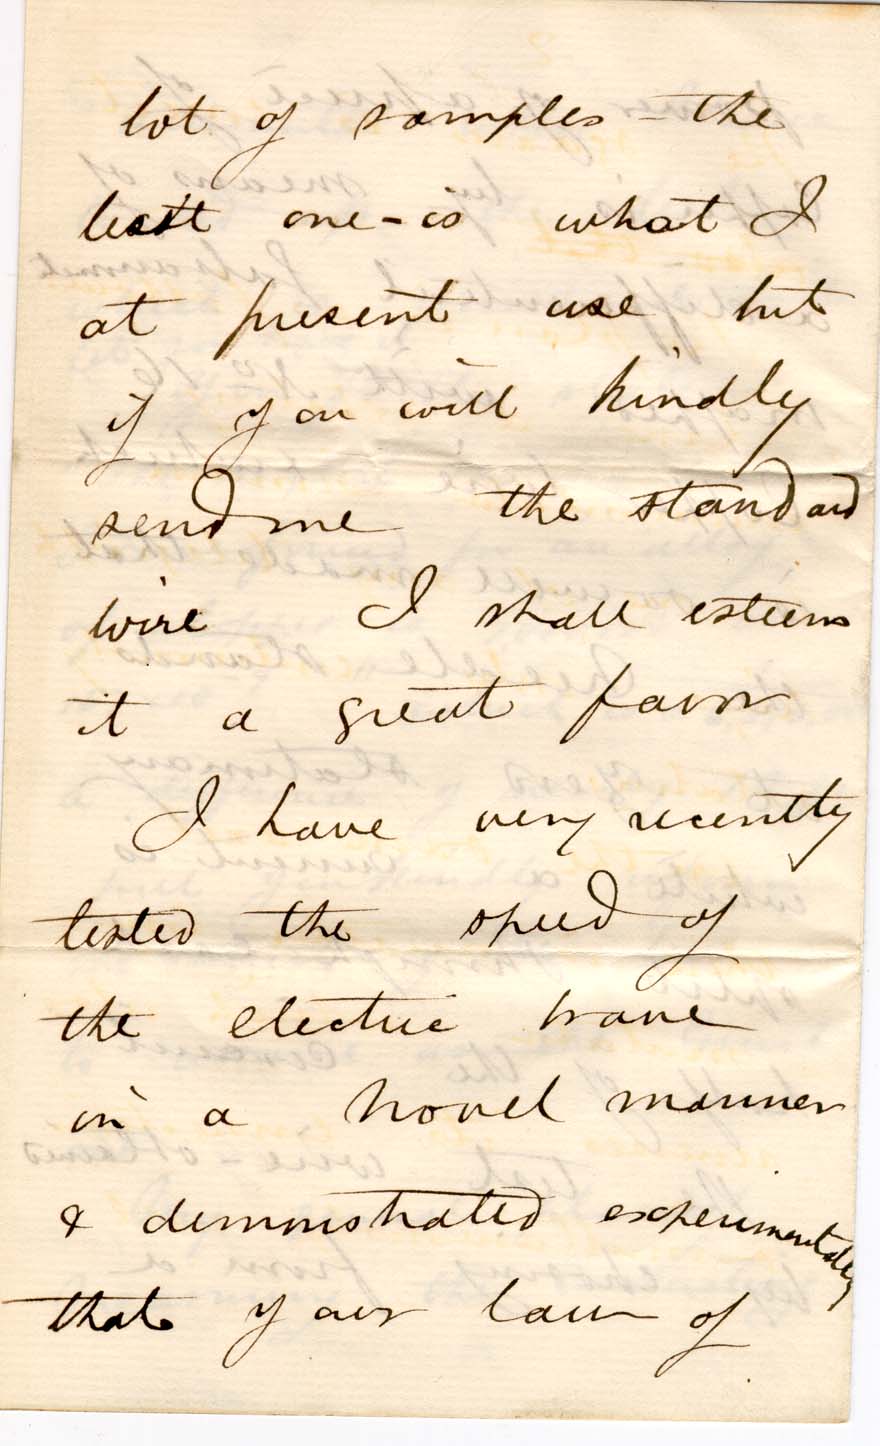 lot of samples - the
best one - is what I
at present use but
if you will kindly
send me the standard
wire I shall esteem
it a great favor
I have very recently
tested the speed of
the electric wave
in a novel manner
& demonstrated experimentally
that your law of